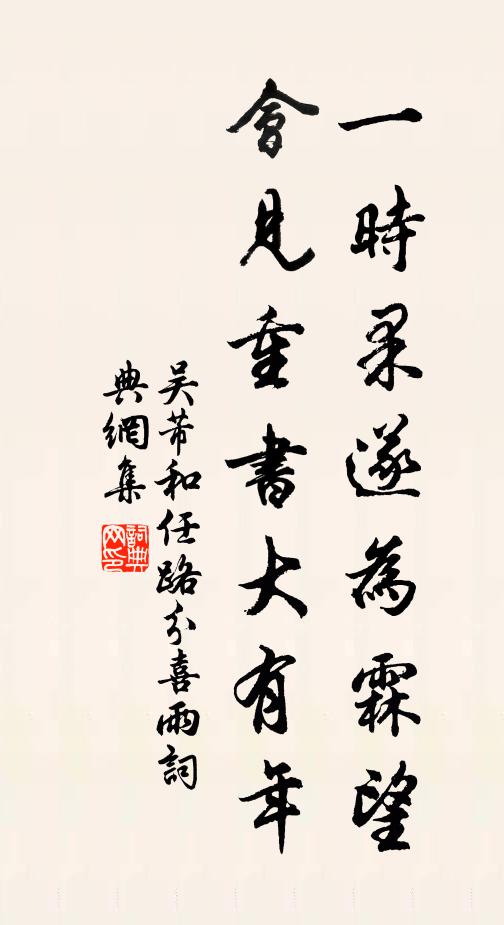 一時果遂為霖望
會見重書大有年
吳芾和任路分喜雨詞
典網集
詞典網印